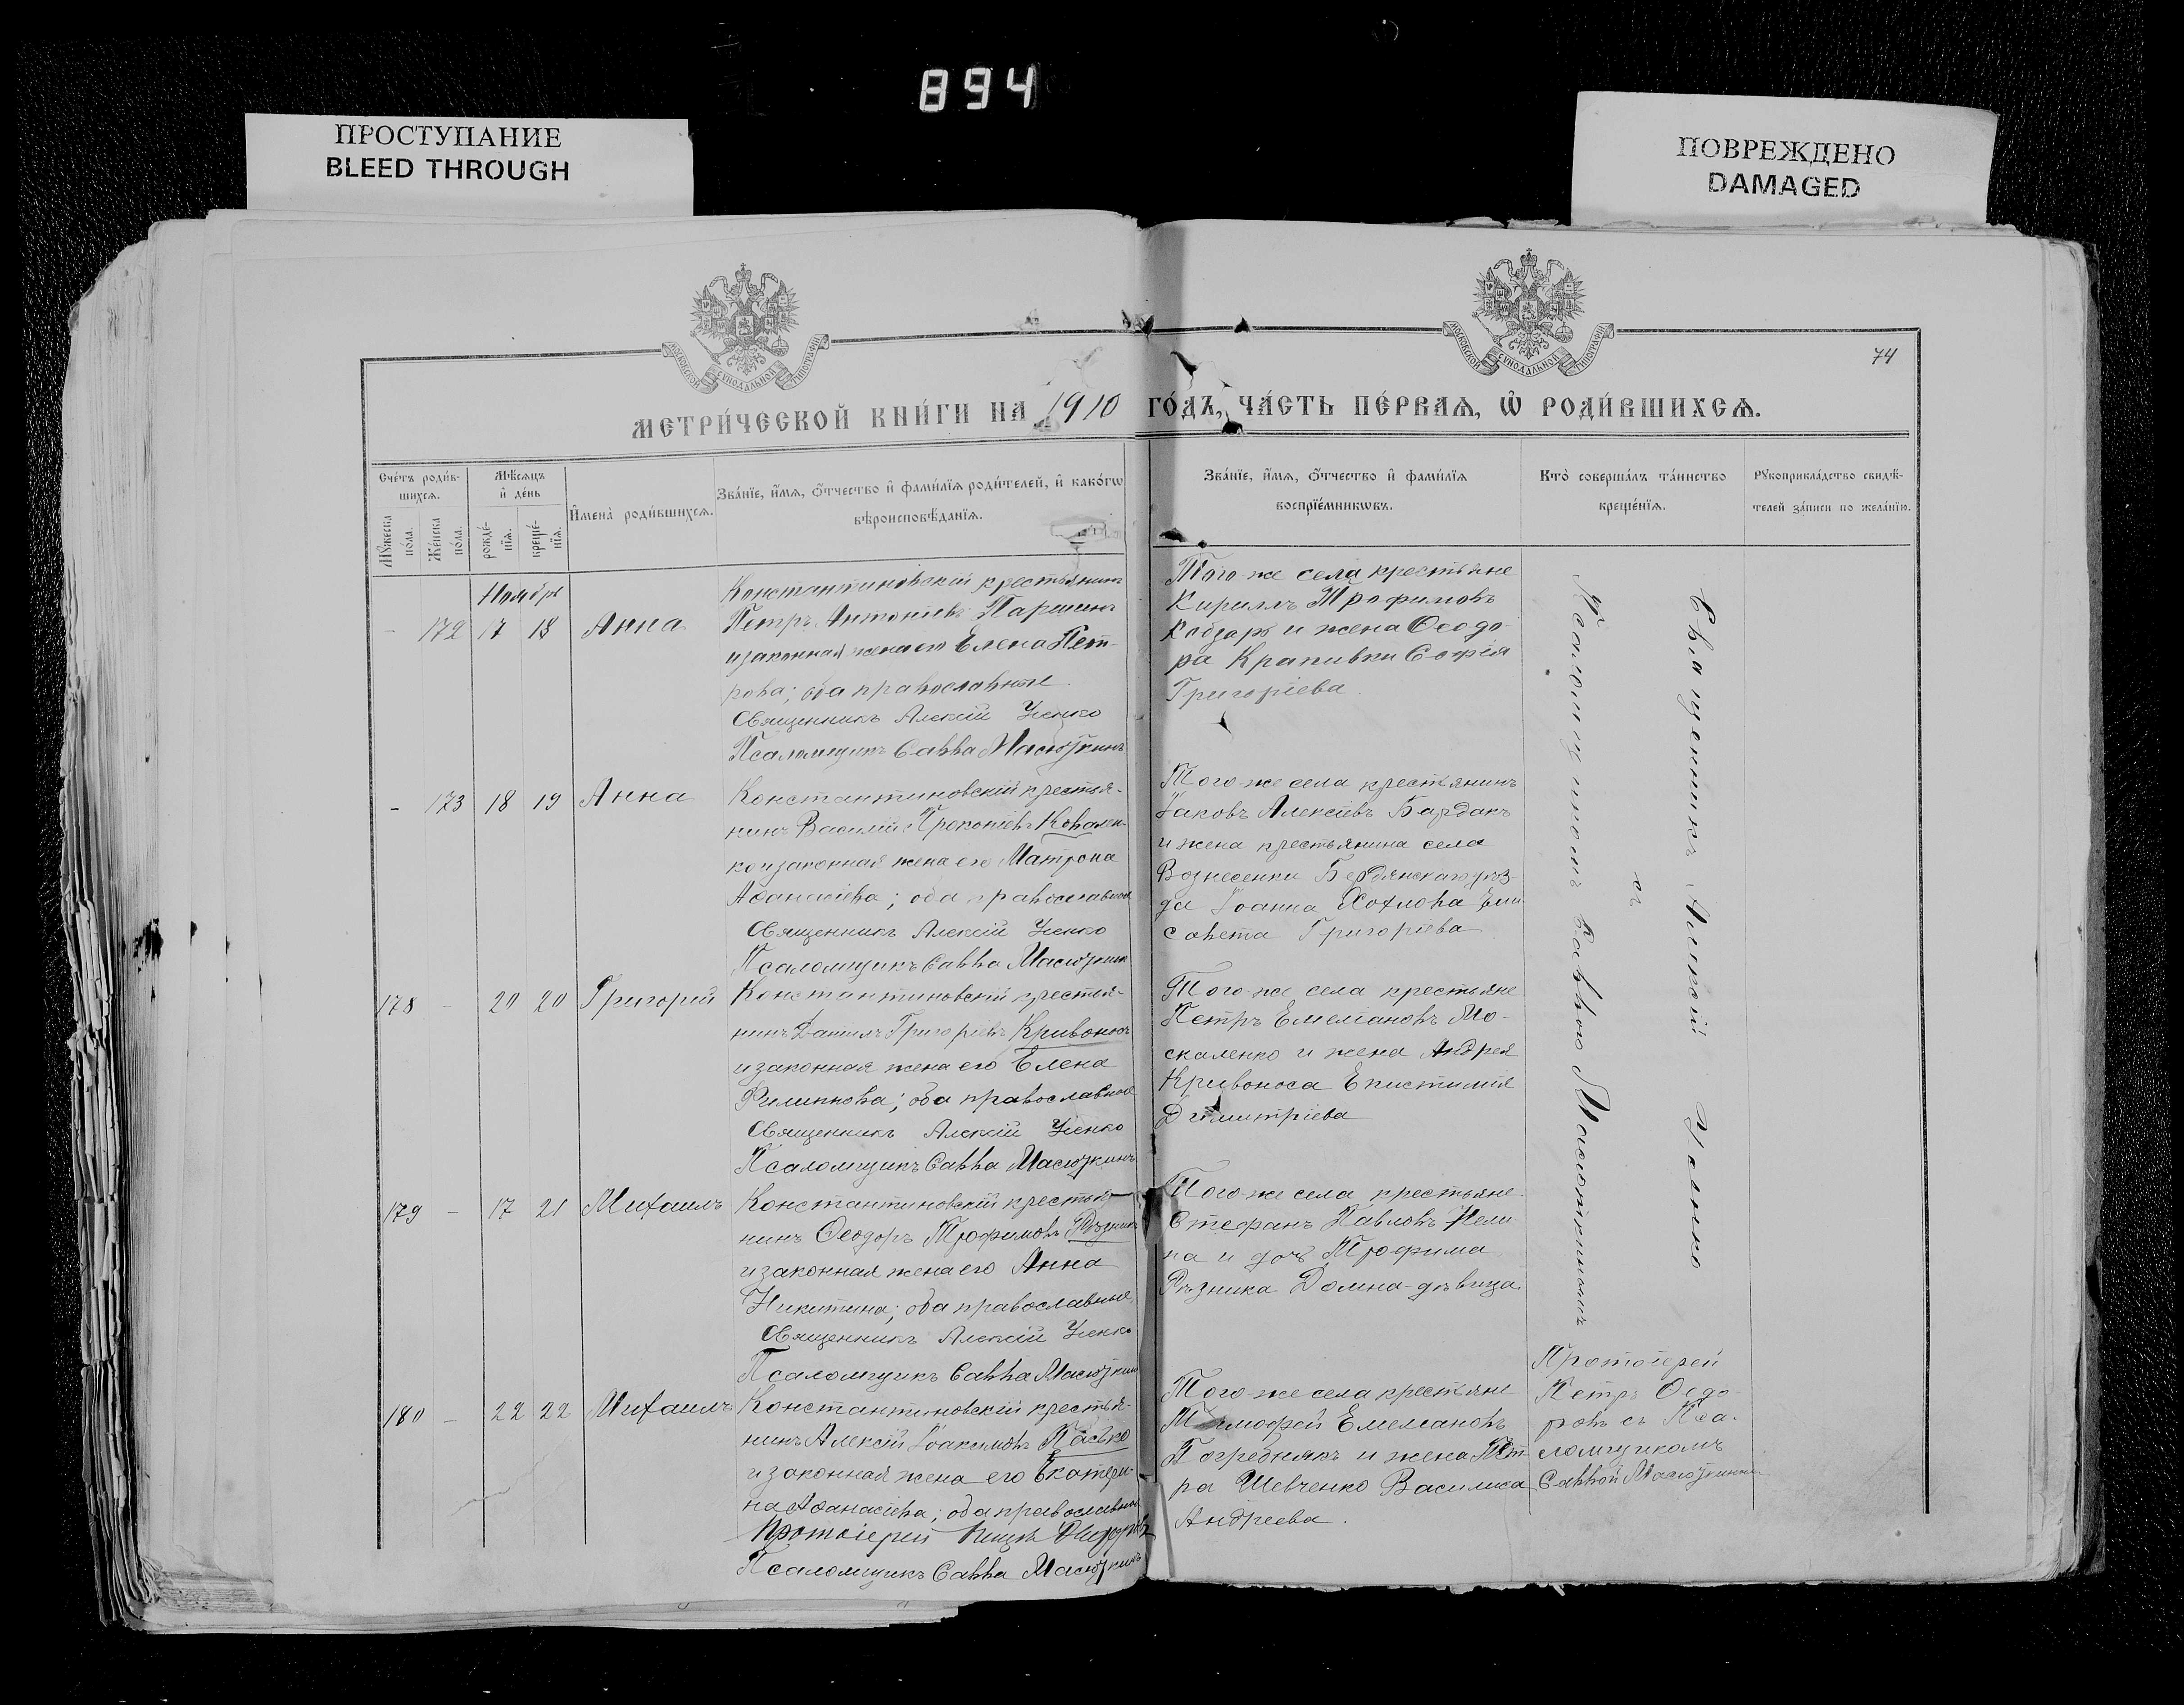 894
ПРОСТУПАНИЕ
BLEED THROUGH
ПОВРЕЖДЕНО
DAMAGED
МОСКОВСКОЙ СѴНОДАЛЬНОЙ ТИПОГРАФІИ
МОСКОВСКОЙ СѴНОДАЛЬНОЙ ТИПОГРАФІИ
74
МЕТРИ́ЧЕСКОЙ КНИ́ГИ НА 1910 ГО́ДЪ, ЧА́СТЬ ПЕ́РВАѦ, Ѡ҆ РОДИ́ВШИХСѦ.
Сче́тъ роди́в-
шихсѧ.
Мꙋ́жеска по́ла.
Же́нска по́ла.
Мѣ́сѧцъ
и҆ де́нь
рожде́-
нїѧ.
креще́-
нїѧ.
И҆мена̀ роди́вшихсѧ.
Зва́нїе, и҆́мѧ, ѻ҆́тчество и҆ фами́лїѧ роди́телей, и҆ како́гѡ
вѣроисповѣ́данїѧ.
Зва́нїе, и҆́мѧ, ѻ҆́тчество и҆ фами́лїѧ
воспрїе́мникѡвъ.
Кто̀ соверша́лъ та́инство
креще́нїѧ.
Рꙋкоприкла́дство свидѣ́-
телей за́писи по жела́нїю.
Ноябрь
- 172 17 18 Анна
Константиновскій крестьянинъ
Петръ Антоніевъ Паршинъ
и законная жена его Елена Пет-
рова; оба православные
Священникъ Алексій Усенко
Псаломщикъ Савва Масюткинъ
Того-же села крестьяне
Кириллъ Трофимовъ
Кобзарь и жена Ѳеодо-
ра Крапивки Софія
Григоріева.
- 173 18 19 Анна
Константиновскій крестья-
нинъ Василій Прокопіевъ Ковален-
ко и законная жена его Матрона
Аѳанасіева; оба православные
Священникъ Алексій Усенко
Псаломщикъ Савва Масюткинъ
Того-же села крестьянинъ
Іаковъ Алексіевъ Бардакъ
и жена крестьянина села
Вознесенки Бердянскаго уѣз-
да Іоанна Хохлова Ели-
савета Григоріева
178 - 20 20 Григорій
Константиновскій крестья-
нинъ Даніилъ Григоріевъ Кривоносъ
и законная жена его Елена
Филиппова; оба православные
Священникъ Алексій Усенко
Псаломщикъ Савва Масюткинъ
Того-же села крестьяне
Петръ Емеліановъ Мо-
скаленко и жена Андрея
Кривоноса Епистимія
Димитріева
179 - 17 21 Михаилъ
Константиновскій крестья-
нинъ Ѳеодоръ Трофимовъ Рѣзникъ
и законная жена его Анна
Никитина; оба православные
Священникъ Алексій Усенко
Псаломщикъ Савва Масюткинъ
Того-же села крестьяне
Стефанъ Павловъ
на и дочь Трофима
Рѣзника Домна-дѣвица.
Священникъ Алексій Усенко
съ
Псаломщикомъ Саввою Масюткинымъ
180 - 22 22 Михаилъ
Константиновскій крестья-
нинъ Алексій Іоакимовъ Пасько
и законная жена его Екатери-
на Аѳанасіева; оба православные
Протоіерей Петръ Ѳедоровъ
Псаломщикъ Савва Масюткинъ
Того-же села крестьяне
Тимофей Емеліановъ
Погребнякъ и жена Пет-
ра Шевченко Василиса
Андреева.
Протоіерей
Петръ Ѳедо-
ровъ съ Пса-
ломщикомъ
Саввой Масюткинымъ